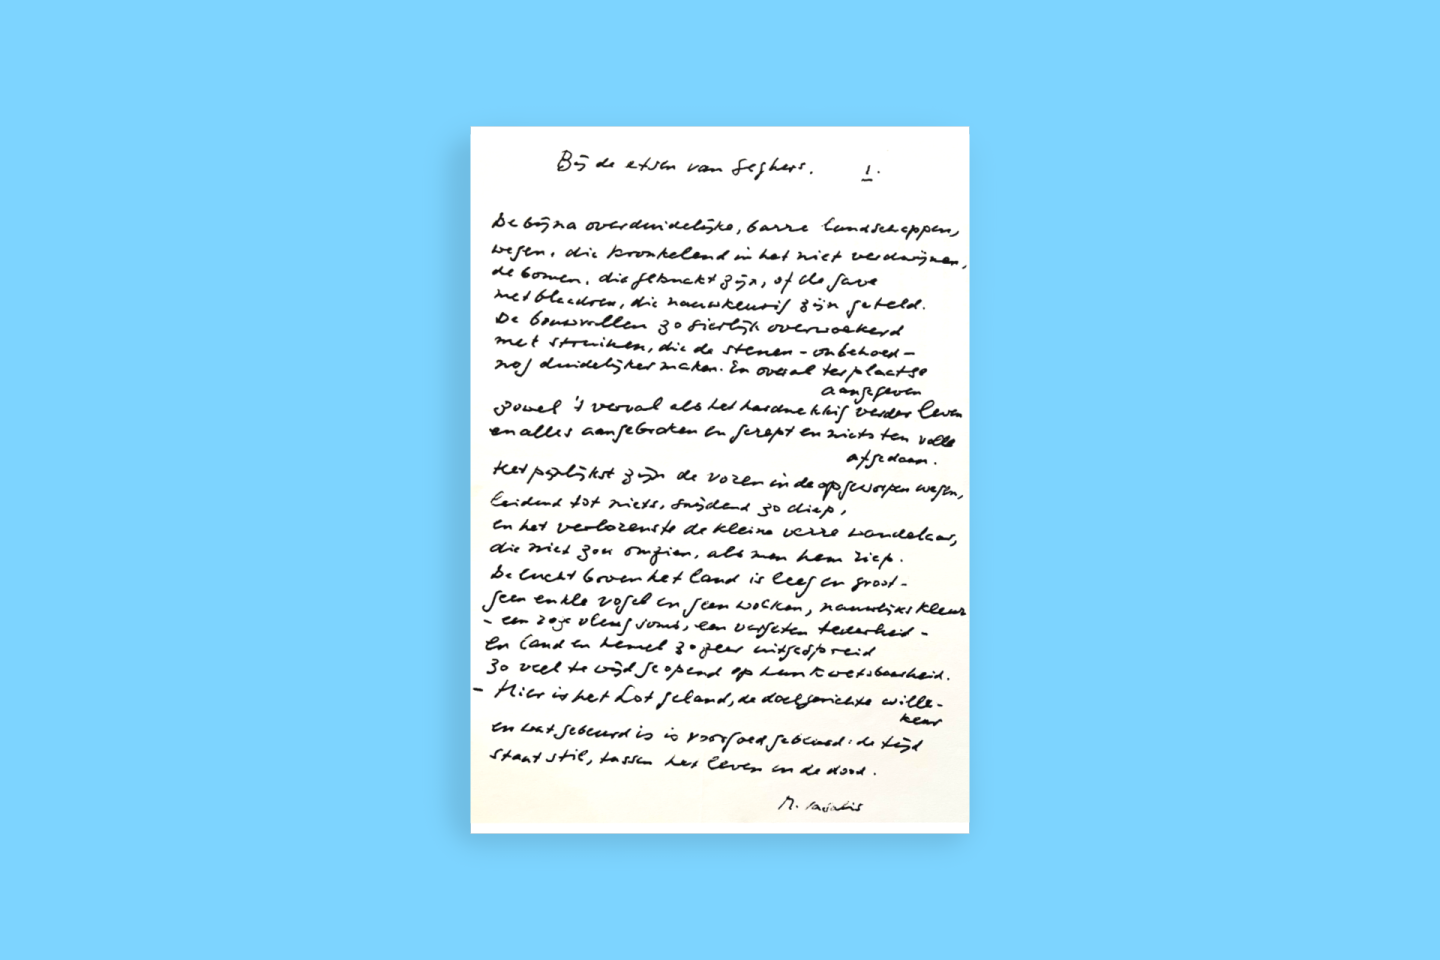 Bij de etsen van Seghers. 1.
De bijna overduidelijke, barre landschappen,
wegen, die kronkelend in het niet verdwijnen,
de bomen, die geknakt zijn, of de gave
met bladren, die nauwkeurig zijn geteld.
De bouwvallen zo sierlijk overwoekerd
met struiken, die de stenen - onbehoed -
nog duidelijker maken. En overal ter plaatse
aangegeven
zowel 't verval als het hardnekkig verder leven
en alles aangebroken en gerept en niets ten volle
afgedaan.
Het pijnlijkst zijn de voren in de opgeworpen wegen,
leidend tot niets, snijdend zo diep,
en het verlorenste de kleine verre wandelaar,
die niet zou omzien, als men hem riep.
De lucht boven het land is leeg en groot -
geen enkle vogel en geen wolken, nauwlijks kleur
- een roze vleug soms, een vergeten tederheid -
En land en hemel zozeer uitgespreid
zo veel te wijd geopend op hun kwetsbaarheid.
- Hier is het Lot geland, de doelgerichte wille-
keur
en wat gebeurd is is voorgoed gebeurd: de tijd
staat stil, tussen het leven en de dood.
M. Vasalis